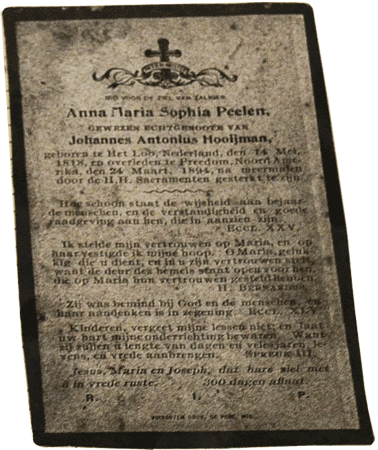 BID VOOR DE ZIEL VAN ZALIGER
Anna Maria Sophia Peelen,
GEWEZEN ECHTGENOOTE VAN
Johannes Antonius Hooijman,
geboren te Het Loo, Nederland, den 14 Mei,
1818, en overleden te Freedom, Noord Ame-
rika, den 24 Maart, 1894, na meermalen
door de H.H. Sacramenten gesterkt te zijn.
Hoe schoon staat de wijsheid aan bejaar-
de menschen, en de verstandigheid en goede
raadgeving aan hen, die in aanzien zijn.
ECCL. XXV.
Ik stelde mijn vertrouwen op Maria, en op
haar vestigde ik mijne hoop. O Maria, geluk-
kig die u dient, en in u zijn vertrouwen stelt,
want de deur des hemels staat open voor hen,
die op Maria hun vertrouwen gesteld hebben.
H. BERNARDUS.
Zij was bemind bij God en de menschen, en
haar aandenken is in zegening. ECCL. XLV.
Kinderen, vergeet mijne lessen niet; en laat
uw hart mijne onderrichting bewaren. Want
zij zullen u lengte van dagen en vele jaren, le-
vens, en vrede aanbrengen. SPREUK III.
Jesus, Maria en Joseph, dat hare ziel met
u in vrede ruste. 300 dagen aflaat.
R. I. P.
DE PERE, WIS.